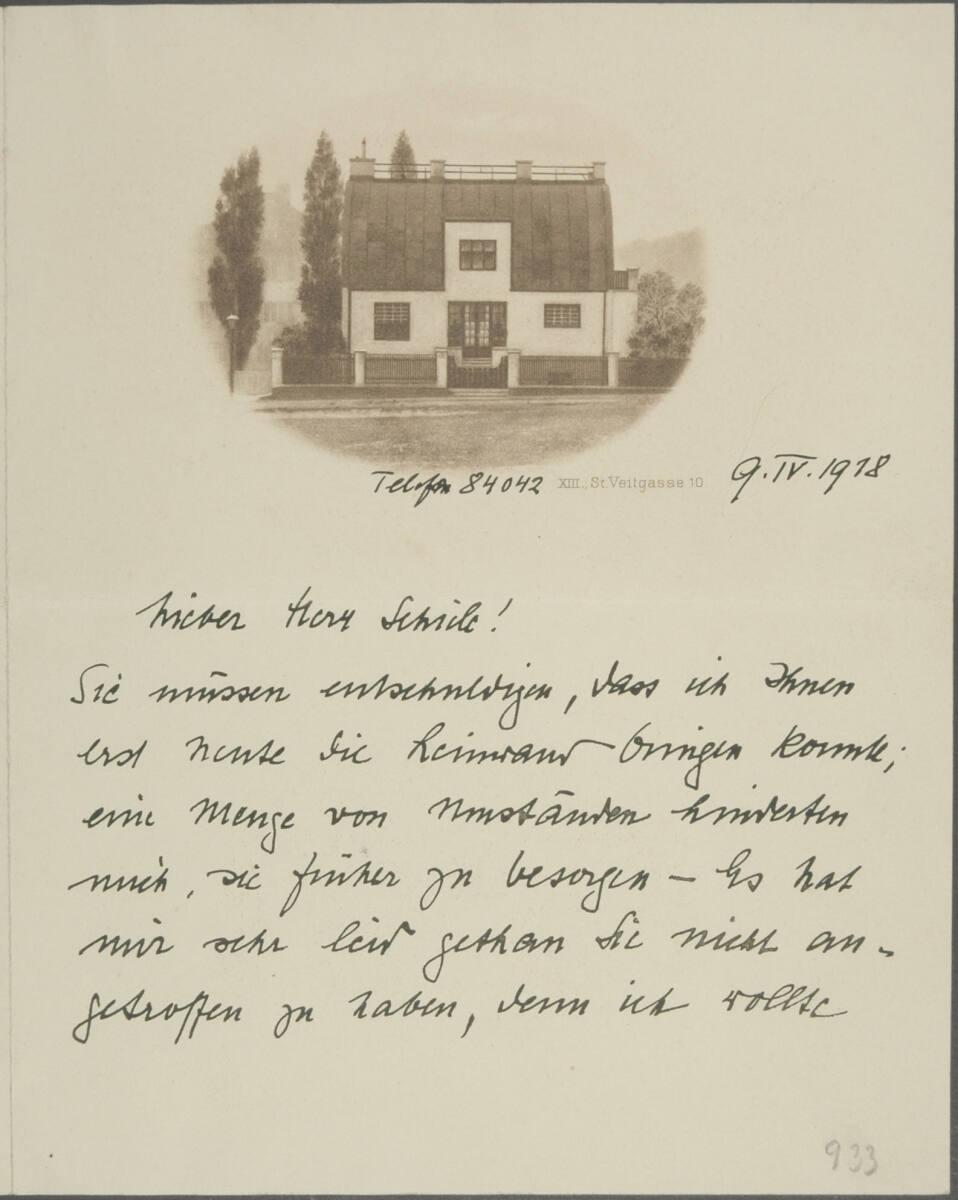 Telefon 84042 XIII., St. Veitgasse 10 9.IV.1918
Lieber Herr Schiele!
Sie müssen entschuldigen, dass ich Ihnen
erst heute die Leinwand bringen konnte;
eine Menge von Umständen hinderten
mich, sie früher zu besorgen – Es hat
mir sehr leid gethan Sie nicht an-
getroffen zu haben, denn ich wollte
933